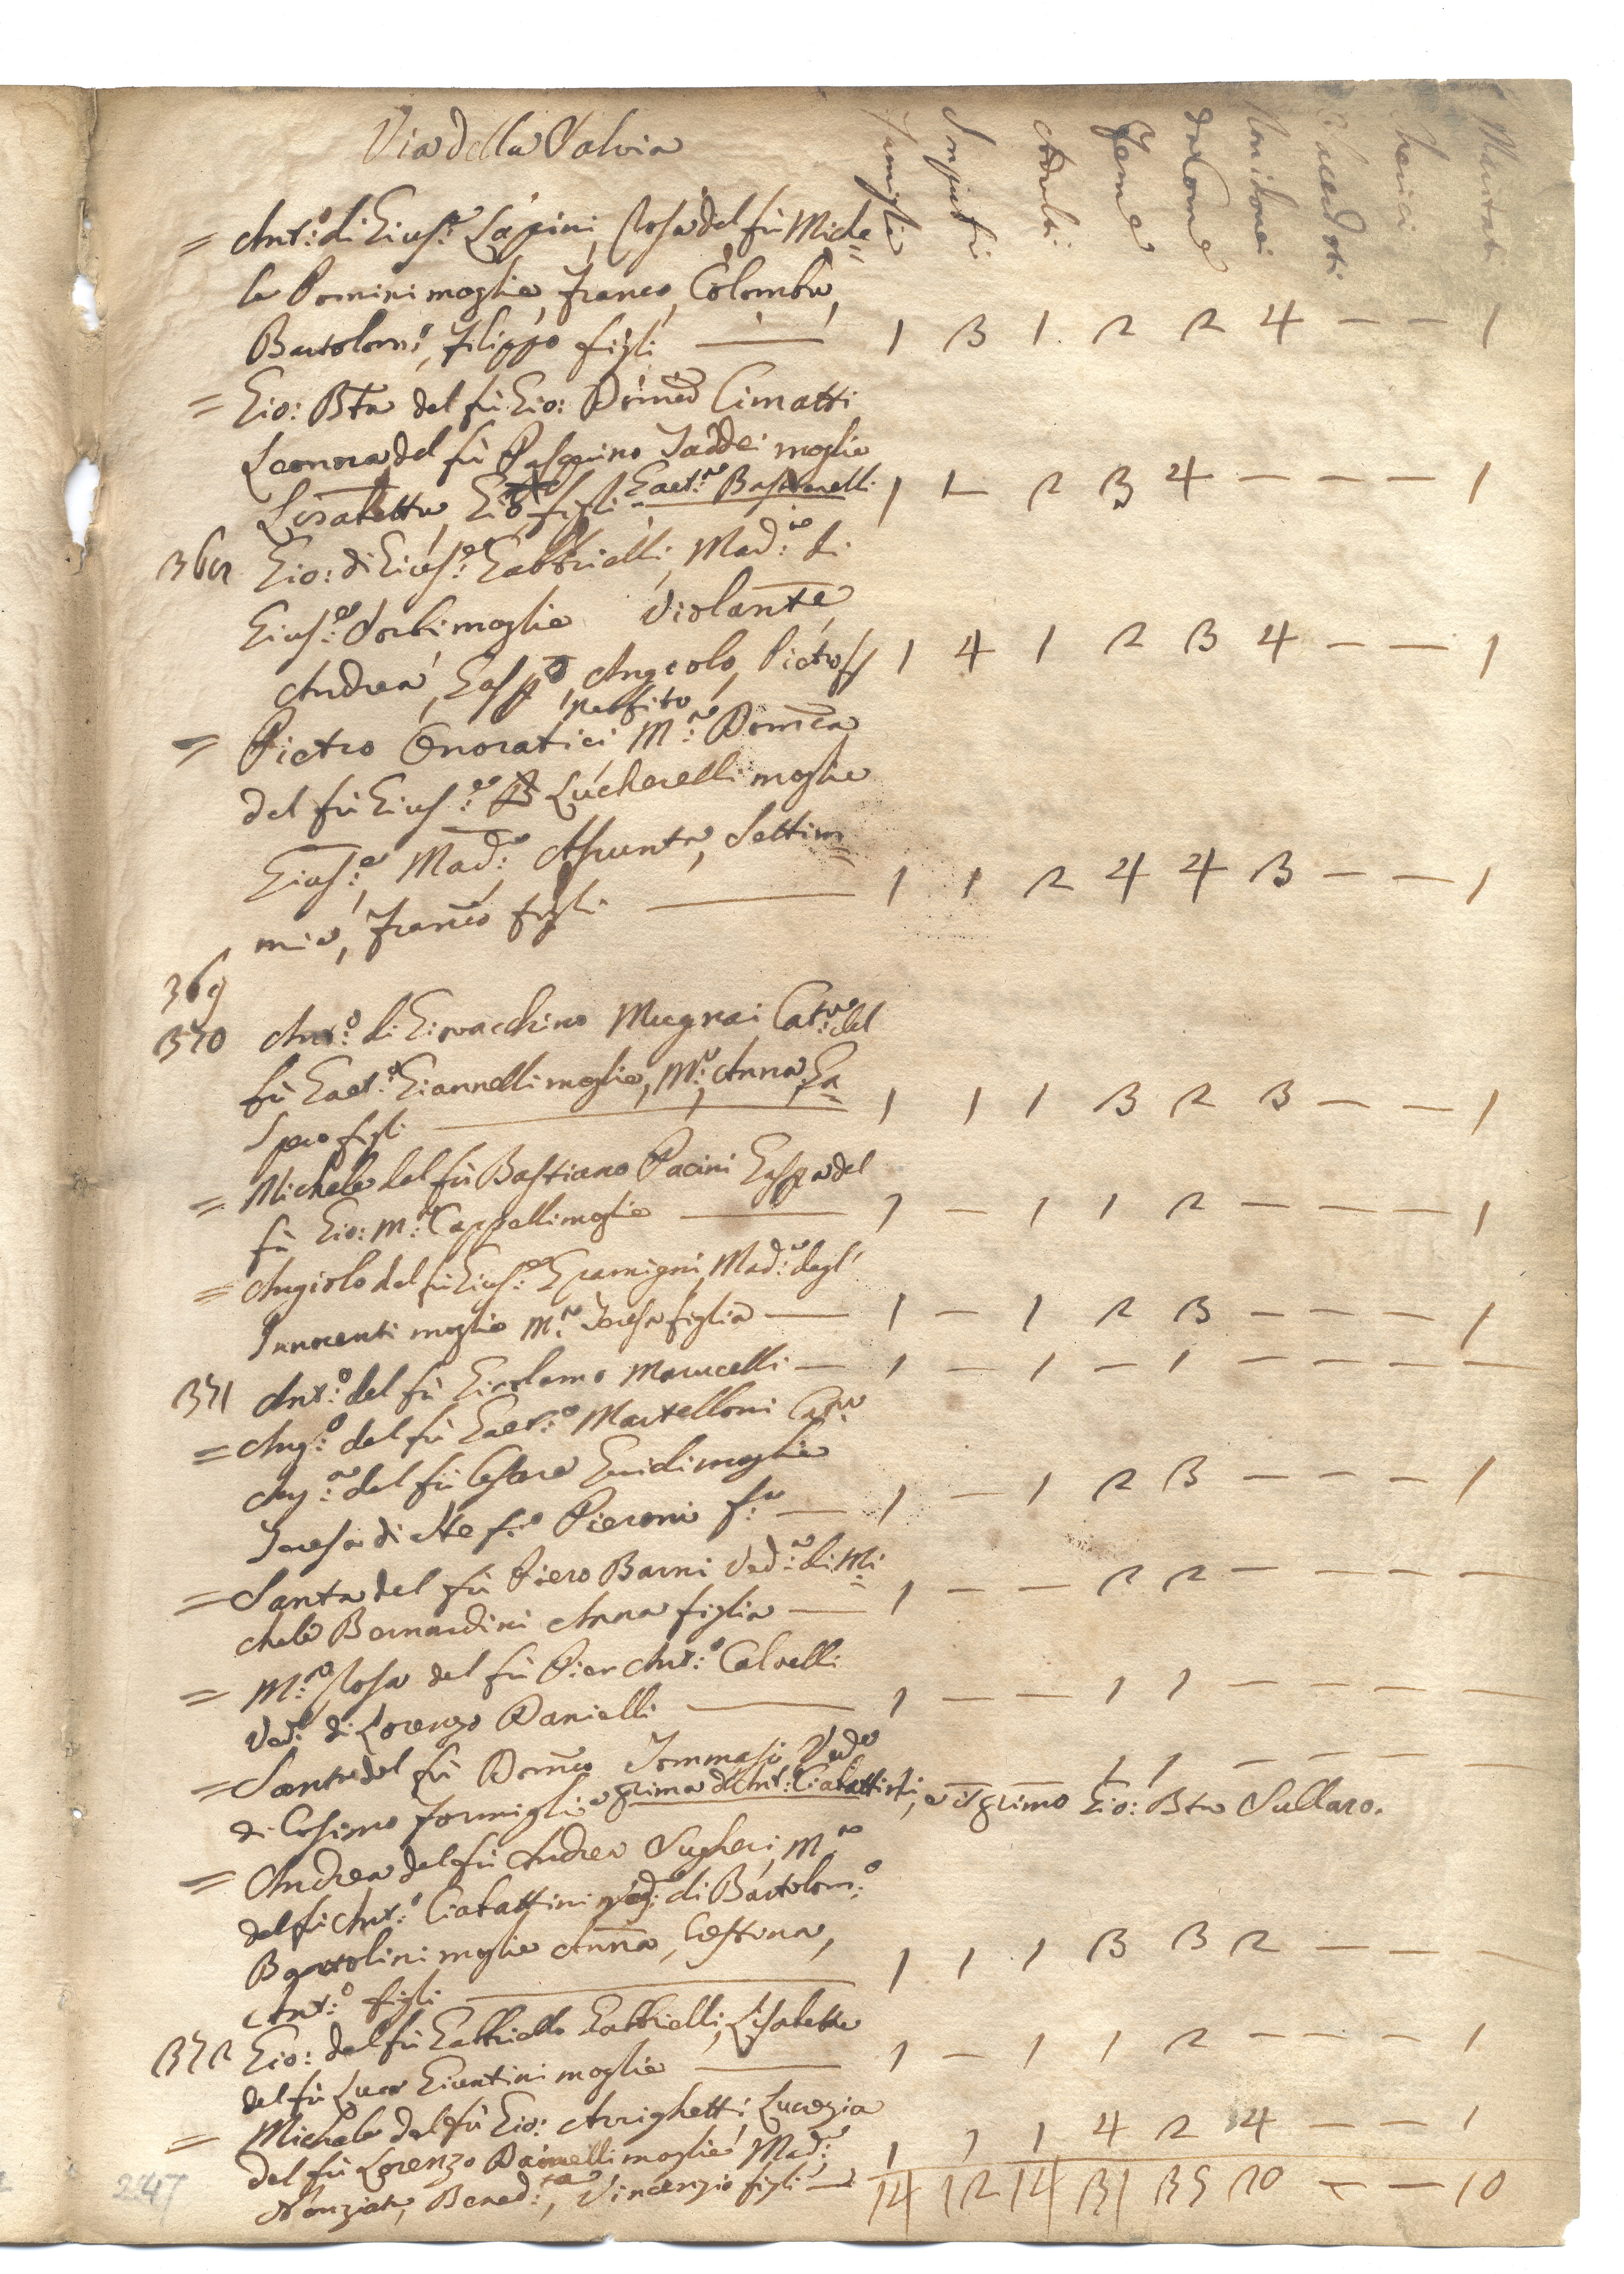 Via della Salvia
Famiglie Impuberi Adulti Feme da Com. Non Com. Sacerdoti Cherici Maritati
= Ant:º di Gius:e Lapini, Rosa del fù Miche=
le Domini moglie, Franco, Colomba,
Bartolomº, Filippo figli — 1 3 1. 2 2 4 — — 1
= Gio: Bta del fù Gio: Domco Cimatti
Leonora del fù Pasquino Taddei moglie
Lisabetta, Gio figli Gaet:no 1 1 — 2 3 4 — — — 1
369 Gio: di Gius:e Gabbrielli, Mad:a di
Gius:e Sorbi moglie Violante,
Andrea, Gaspo, Angiolo, Pietro ff 1 4 1 2 3 4 — — 1
= Pietro Onoratici M:a Domca
del fù Gius:e Lucherelli moglie
Gius:e, Mad:a Assunta, Settim=
mia, Franco figli — 1 1 2 4 4 3 — — 1
369
370 Ant:º di Giovacchino Mugnai Cat:a del
fù Gaet:º Giannelli moglie, M:a Anna, Ga=
spero figli — 1 1 1 3 2 3 — — 1
= Michele del fù Bastiano Pacini Gaspa del
fù Gio: M:a Cappelli moglie — 1 — 1 1 2 — — — 1
= Angiolo del fù Gius:e Gramigni, Mad:a degl'
Innocenti moglie M:a Teresa figlia — 1 — 1 2 3 — — — 1
371 Ant:º del fù Girolamo Marucelli — 1 — 1 — 1 — — — —
= Ang:º del fù Gaet:º Martelloni Cat:a
Ang:a del fù Cesare Guidi moglie
Teresa di Ste f:º Pieroni f:a — 1 — 1 2 3 — — — 1
= Santa del fù Piero Barni Ved:a di Mi=
chele Bernardini Anna figlia — 1 — — 2 2 — — — —
= M:a Rosa del fù Pier Ant:º Calvelli
Ved:a di Lorenzo Danielli — 1 — — 1 1 — — — —
= Santa del fù Domco Tommasi Veda 1 1 — — — —
di Cosimo Formigli e prima d'Ant: Ciabattini, e il primo Gio: Bta Sullaro.
= Andrea del fù Andrea Sugheri, M:a
del fù Ant:º Ciabattini ved: di Bartolom:º
Bartolini moglie Anna, Gestina,
Ant:º figli — 1 1 1 3 3 2 — — —
372 Gio: del fù Gabbriello Gabbrielli, Lisabetta
del fù Luca Giuntini moglie — 1 — 1 1 2 — — — 1
= Michele del fù Gio: Arrighetti, Lucrezia
del fù Lorenzo Dainelli moglie Mad:a 1 1 1 4 2 4 — — 1
Nunziata, Bened:ta, Vincenzio figli — 14 12 14 31 35 20 — — 10
247